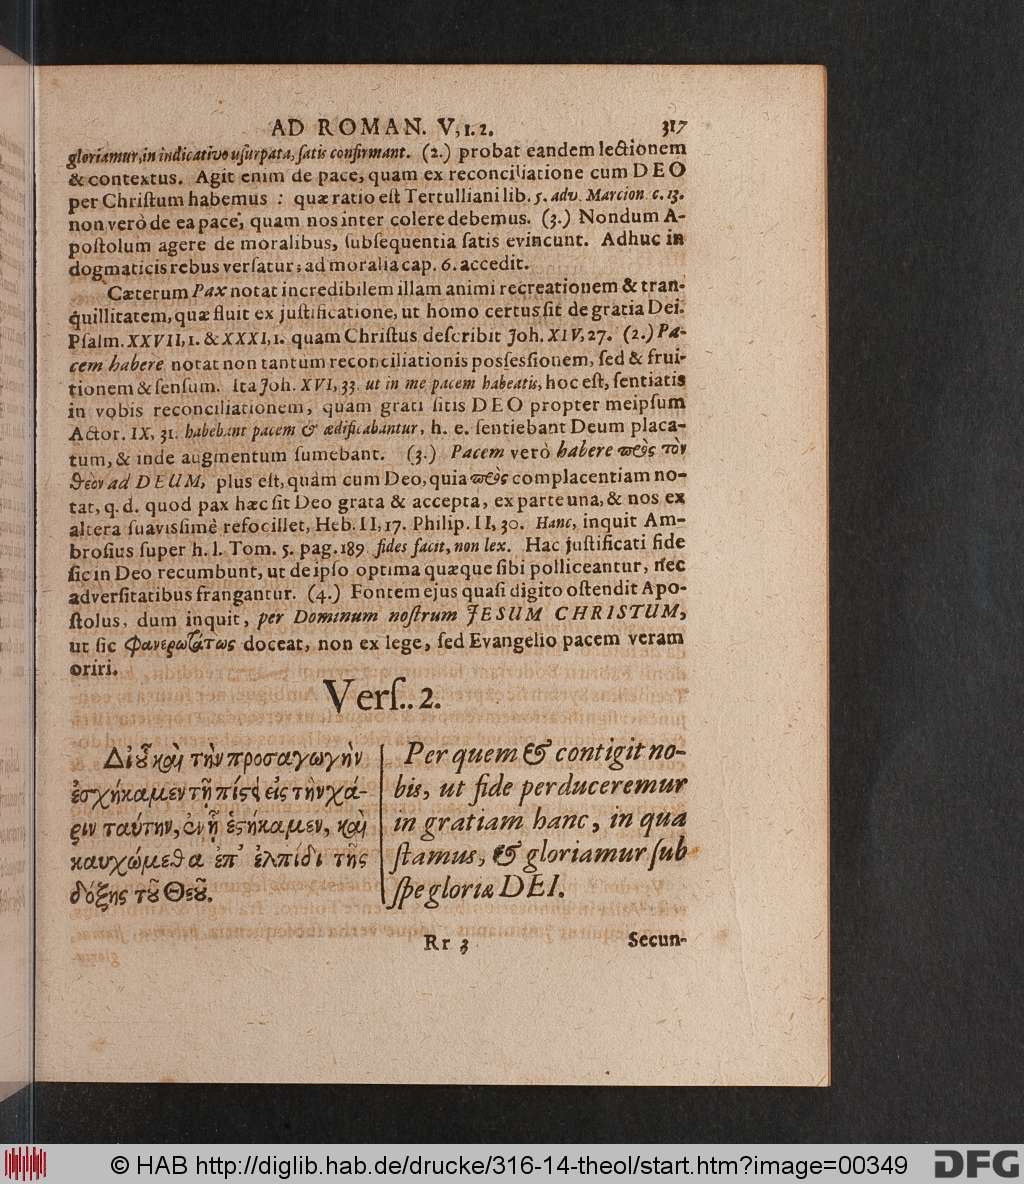 AD ROMAN. V, 1. 2. 317
gloriamur, in indicativo uſurpata, ſatis confirmant. (2.) probat eandem lectionem
& contextus. Agit enim de pace, quam ex reconciliatione cum DEO
per Chriſtum habemus : quæ ratio eſt Tertulliani lib. 5. adv. Marcion. c. 13.
non verò de ea pace, quam nos inter colere debemus. (3.) Nondum A-
poſtolum agere de moralibus, ſubſequentia ſatis evincunt. Adhuc in
dogmaticis rebus verſatur; ad moralia cap. 6. accedit.
Cæterum Pax notat incredibilem illam animi recreationem & tran-
quillitatem, quæ fluit ex juſtificatione, ut homo certus ſit de gratia Dei.
Pſalm. XXVII, 1. & XXXI, 1. quam Chriſtus deſcribit Joh. XIV, 27. (2.) Pa-
cem habere notat non tantum reconciliationis posſesſionem, ſed & frui-
tionem & ſenſum. ita Joh. XVI, 33. ut in me pacem habeatis, hoc eſt, ſentiatis
in vobis reconciliationem, quam grati ſitis DEO propter meipſum
Actor. IX, 31. habebant pacem & ædificabantur, h. e. ſentiebant Deum placa-
tum, & inde augmentum ſumebant. (3.) Pacem verò habere πρὸς τὸν
θεὸν ad DEUM, plus eſt, quàm cum Deo, quia πρὸς complacentiam no-
tat, q. d. quod pax hæc ſit Deo grata & accepta, ex parte una, & nos ex
altera ſuavisſimè refocillet, Heb. II, 17. Philip. II, 30. Hanc, inquit Am-
broſius ſuper h. l. Tom. 5. pag. 189. fides facit, non lex. Hac juſtificati fide
ſic in Deo recumbunt, ut de ipſo optima quæque ſibi polliceantur, nec
adverſitatibus frangantur. (4.) Fontem ejus quaſi digito oſtendit Apo-
ſtolus, dum inquit, per Dominum noſtrum JESUM CHRISTUM,
ut ſic φανερωτάτως doceat, non ex lege, ſed Evangelio pacem veram
oriri.
Verſ.. 2.
Δι' οὗ καὶ τὴν προσαγωγὴν
ἐσχήκαμεν τῇ πίστει εἰς τὴν χά-
ριν ταύτην, ἐν ᾗ ἑστήκαμεν, καὶ
καυχώμεθα ἐπ' ἐλπίδι τῆς
δόξης τοῦ Θεοῦ.
Per quem & contigit no-
bis, ut fide perduceremur
in gratiam hanc, in qua
ſtamus, & gloriamur ſub
ſpe gloriæ DEI.
Rr 3 Secun-
© HAB http://diglib.hab.de/drucke/316-14-theol/start.htm?image=00349 DFG